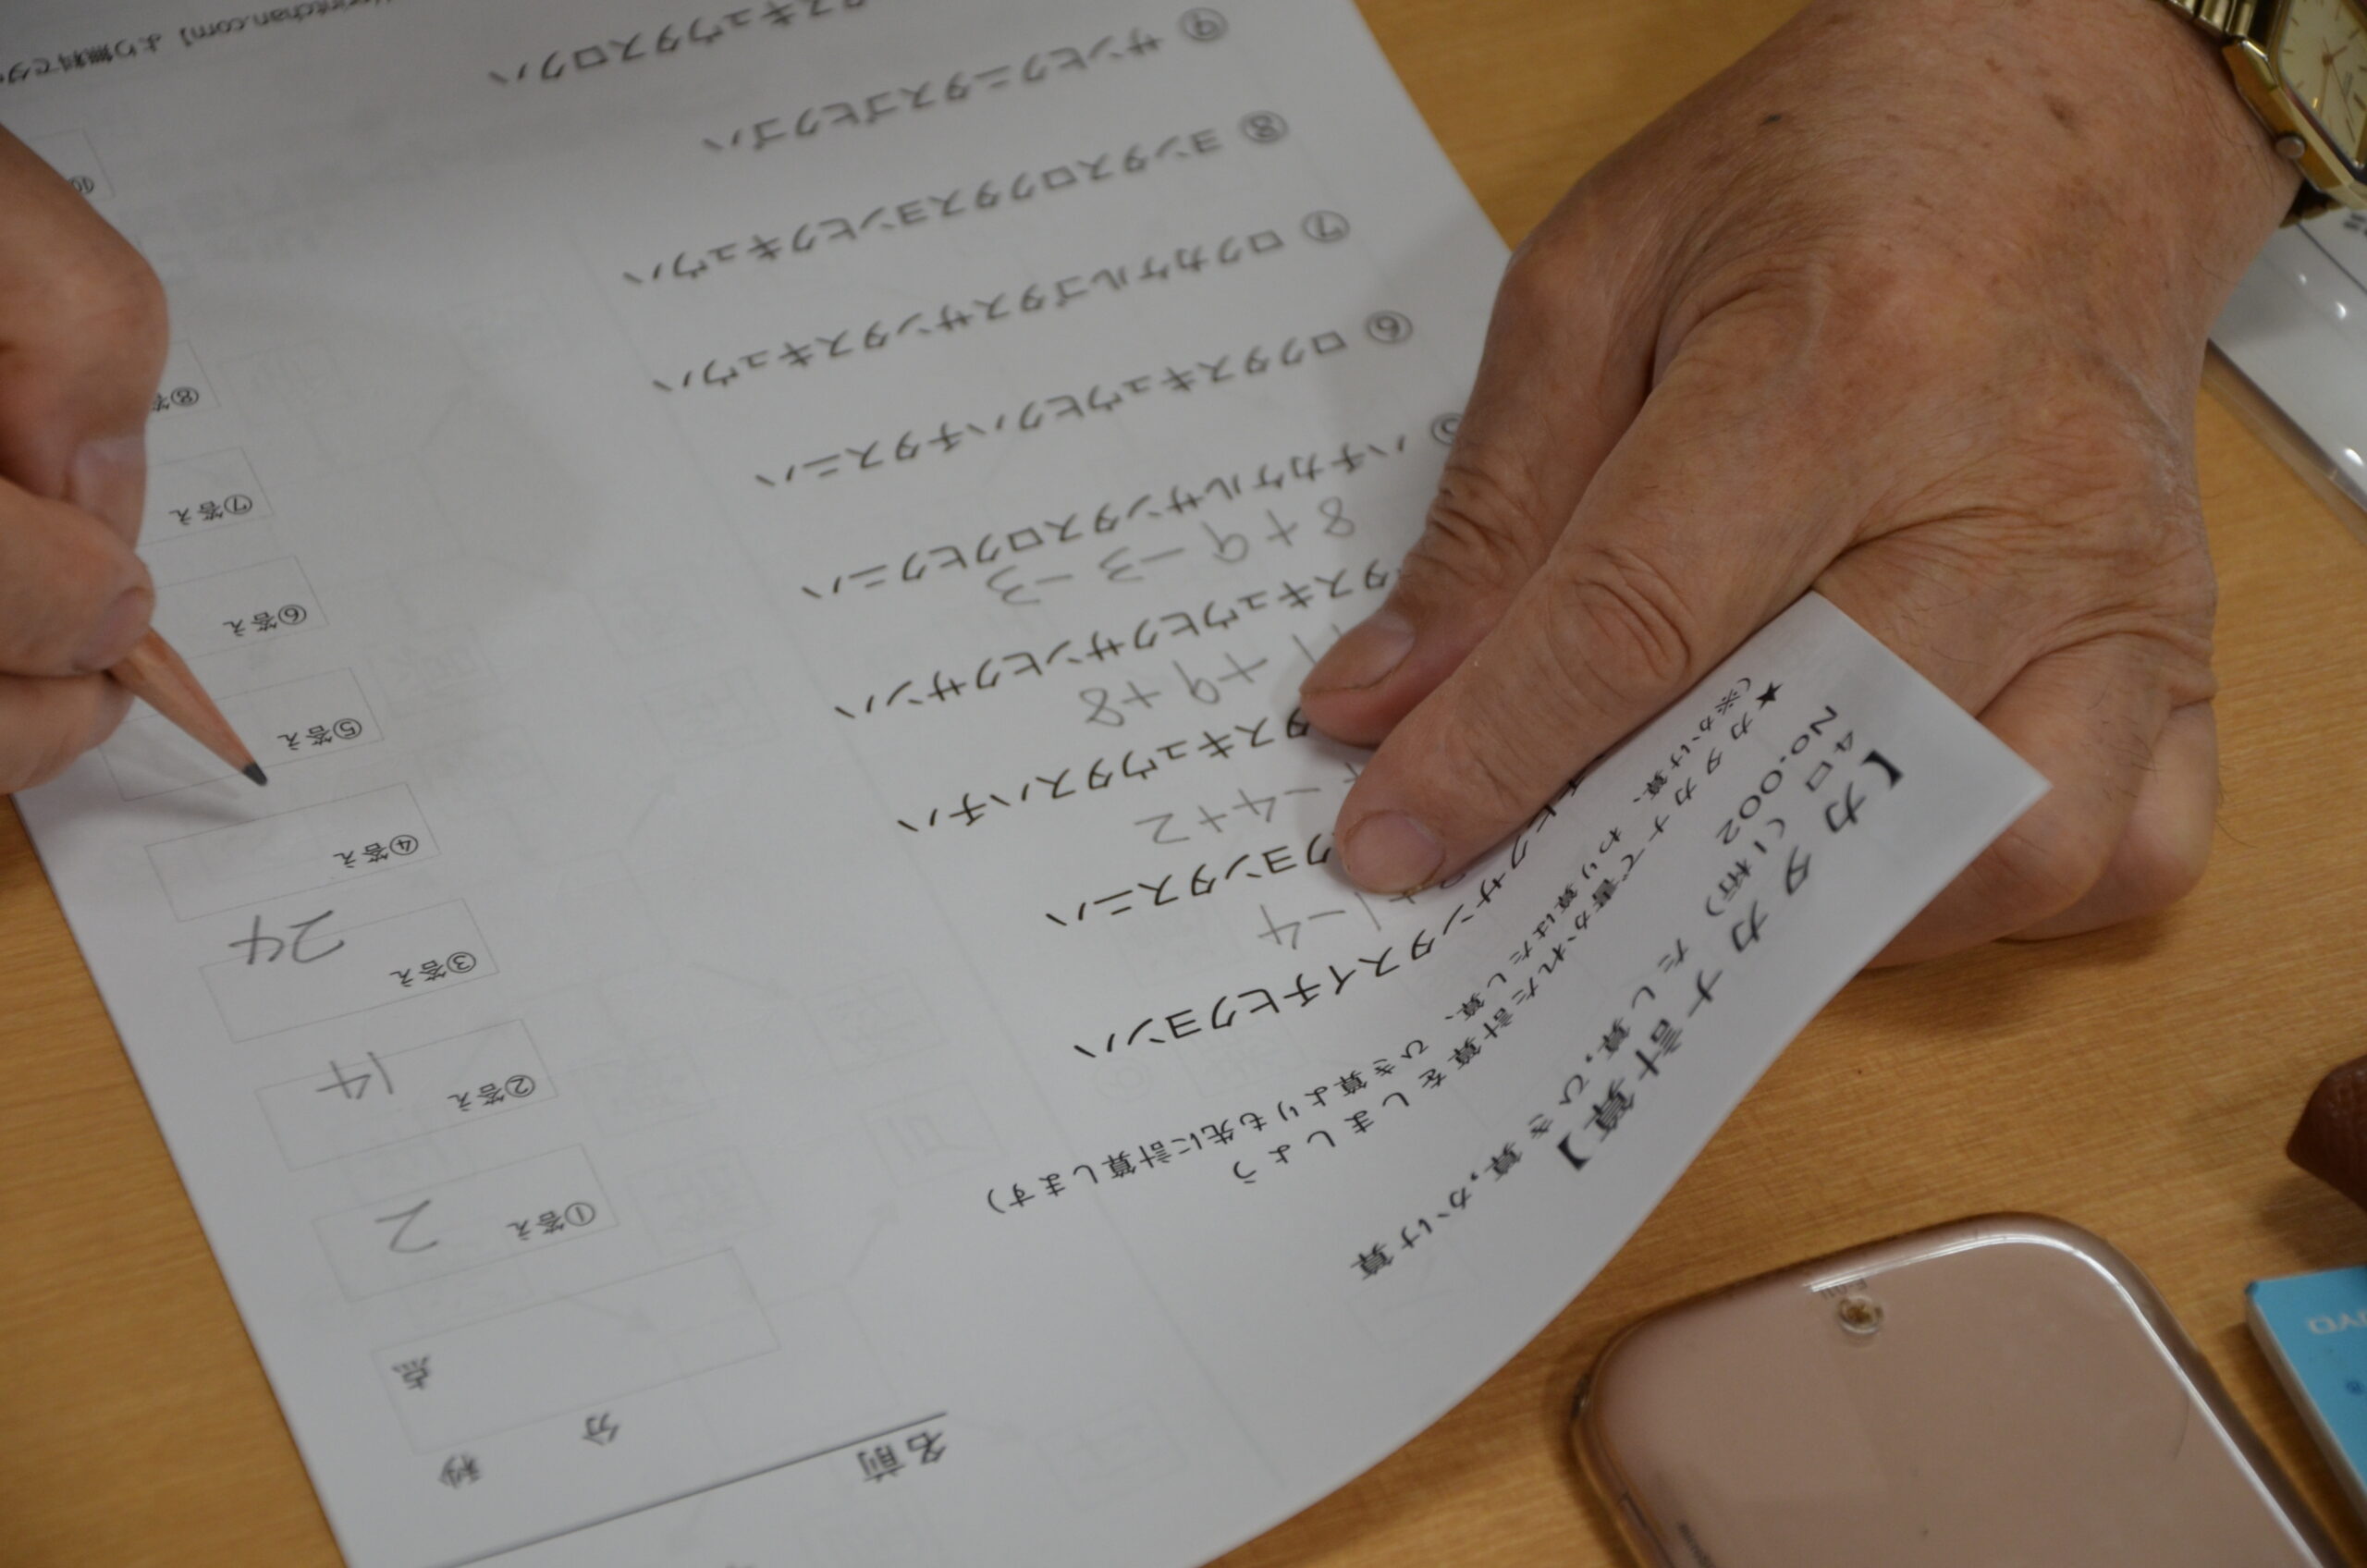 【カタカナ計算】
4口(1桁) たし算,ひき算,かけ算
No.0002
★カタカナで書かれた計算をしましょう
(※かけ算、わり算はたし算、ひき算よりも先に計算します)
名前
分 秒
点
ヒクサンタスイチヒクヨンハ
+1-4
クヨンタスニハ
-4+2
タスキュウタスハチハ
+9+8
タスキュウヒクサンヒクサンハ
8+9-3-3
⑤ ハチカケルサンタスロクヒクニハ
⑥ ロクタスキュウヒクハチタスニハ
⑦ ロクカケルゴタスサンタスキュウハ
⑧ ヨンタスロクタスヨンヒクキュウハ
⑨ サンヒクニタスゴヒクゴハ
タスキュウタスロクハ
①答え 2
②答え 14
③答え 24
④答え
⑤答え
⑥答え
⑦答え
⑧答
⑩
printchan.com】より無料でダ